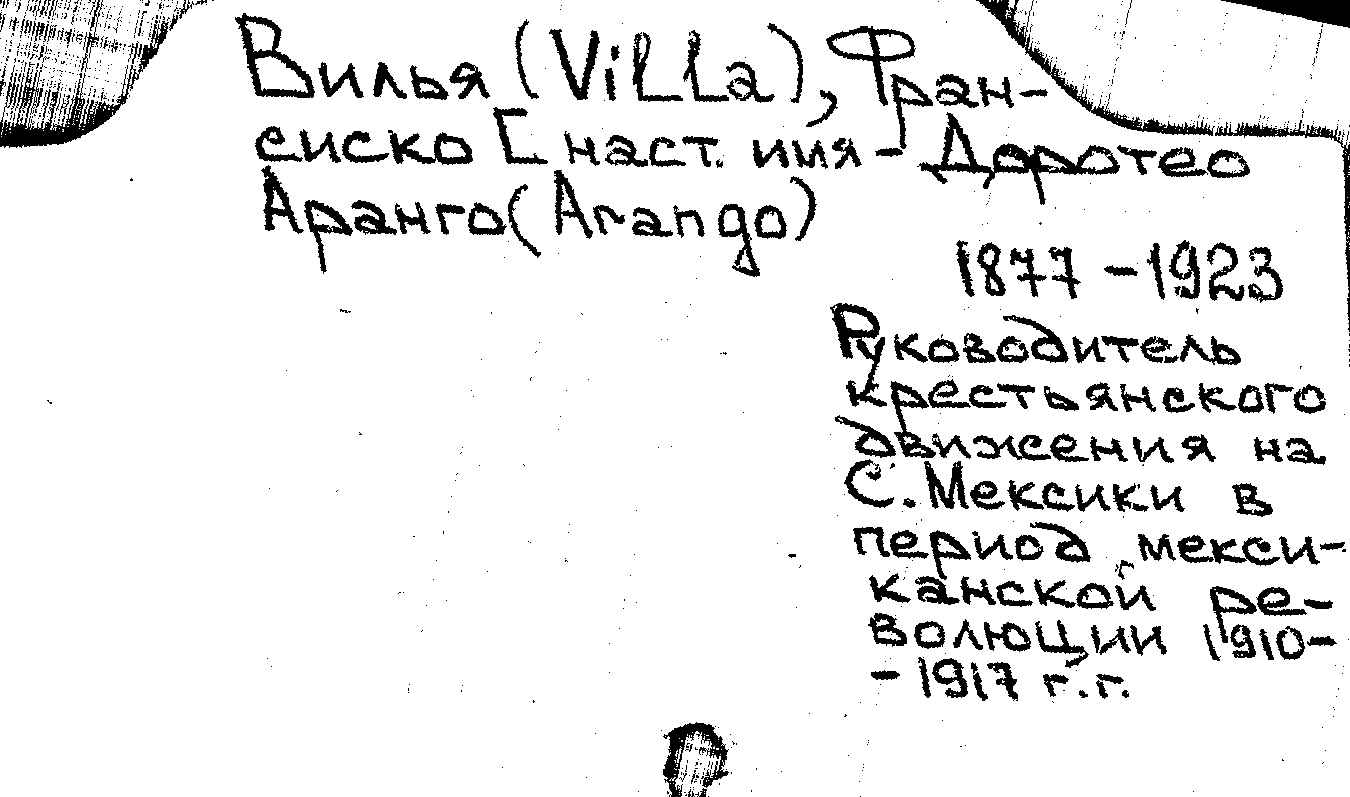 Вилья (Villa), Фран-
сиско [наст. имя - Доротео
Аранго (Arango)
1877 - 1923
Руководитель
крестьянского
движения на
С. Мексики в
период мекси-
канской ре-
волюции 1910-
- 1917 г.г.